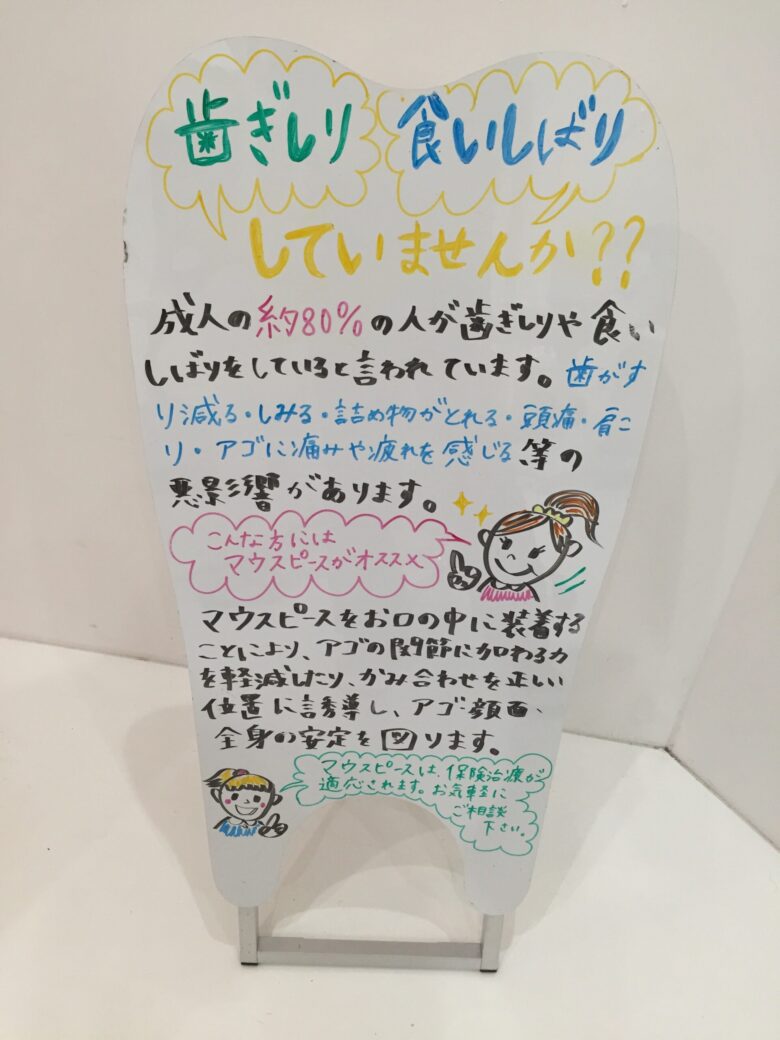 歯ぎしり 食いしばり
していませんか??
成人の約80%の人が歯ぎしりや食い
しばりをしていると言われています。歯がす
り減る・しみる・詰め物がとれる・頭痛・肩こ
り・アゴに痛みや疲れを感じる等の
悪影響があります。
こんな方には
マウスピースがオススメ
マウスピースをお口の中に装着する
ことにより、アゴの関節に加わる力
を軽減したり、かみ合わせを正しい
位置に誘導し、アゴ・顔面・
全身の安定を図ります。
マウスピースは、保険治療が
適応されます。お気軽に
ご相談
下さい。